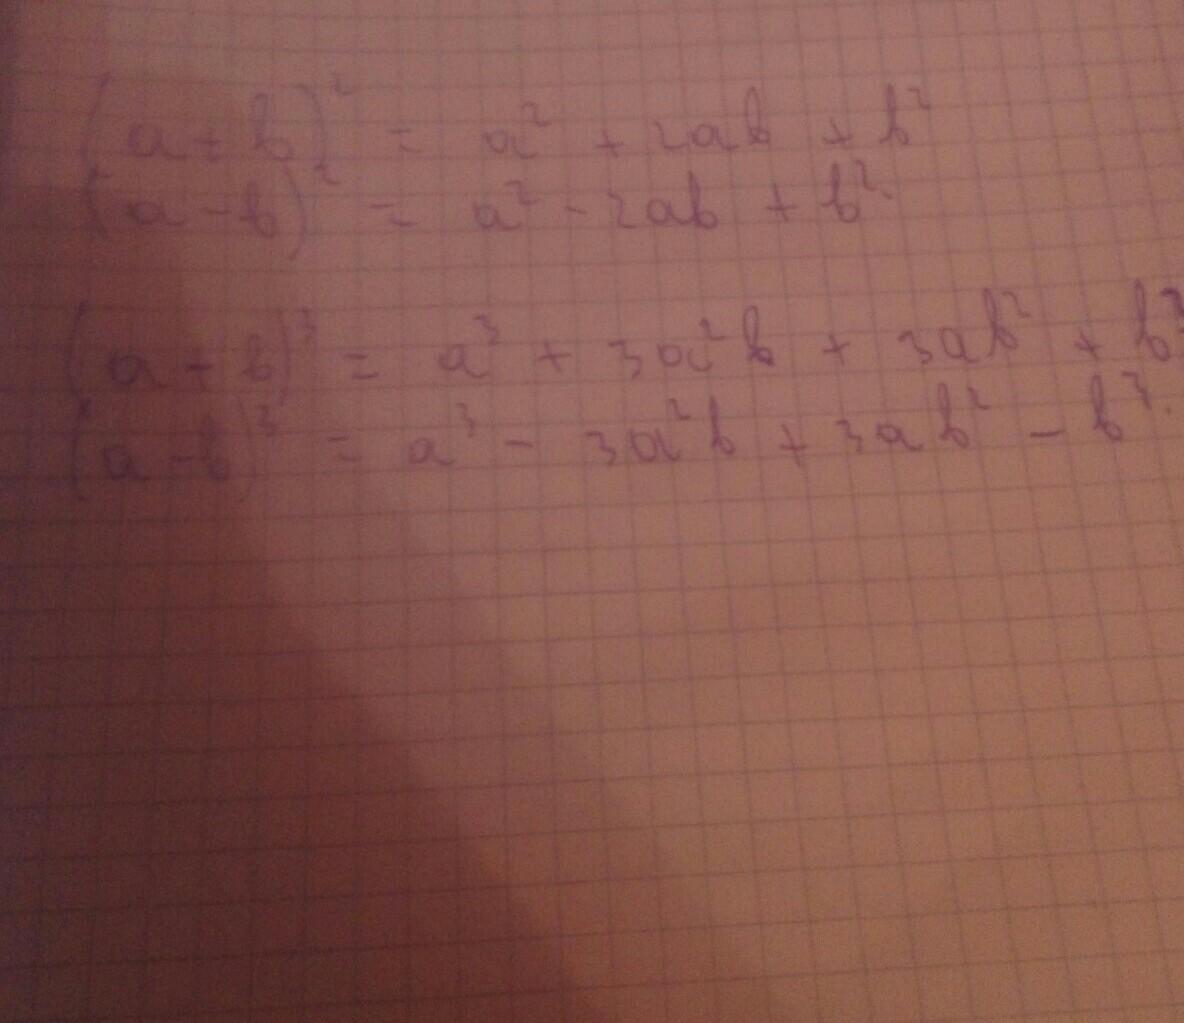 (a+b)² = a² + 2ab + b²
(a-b)² = a² - 2ab + b².
(a+b)³ = a³ + 3a²b + 3ab² + b³
(a-b)³ = a³ - 3a²b + 3ab² - b³.